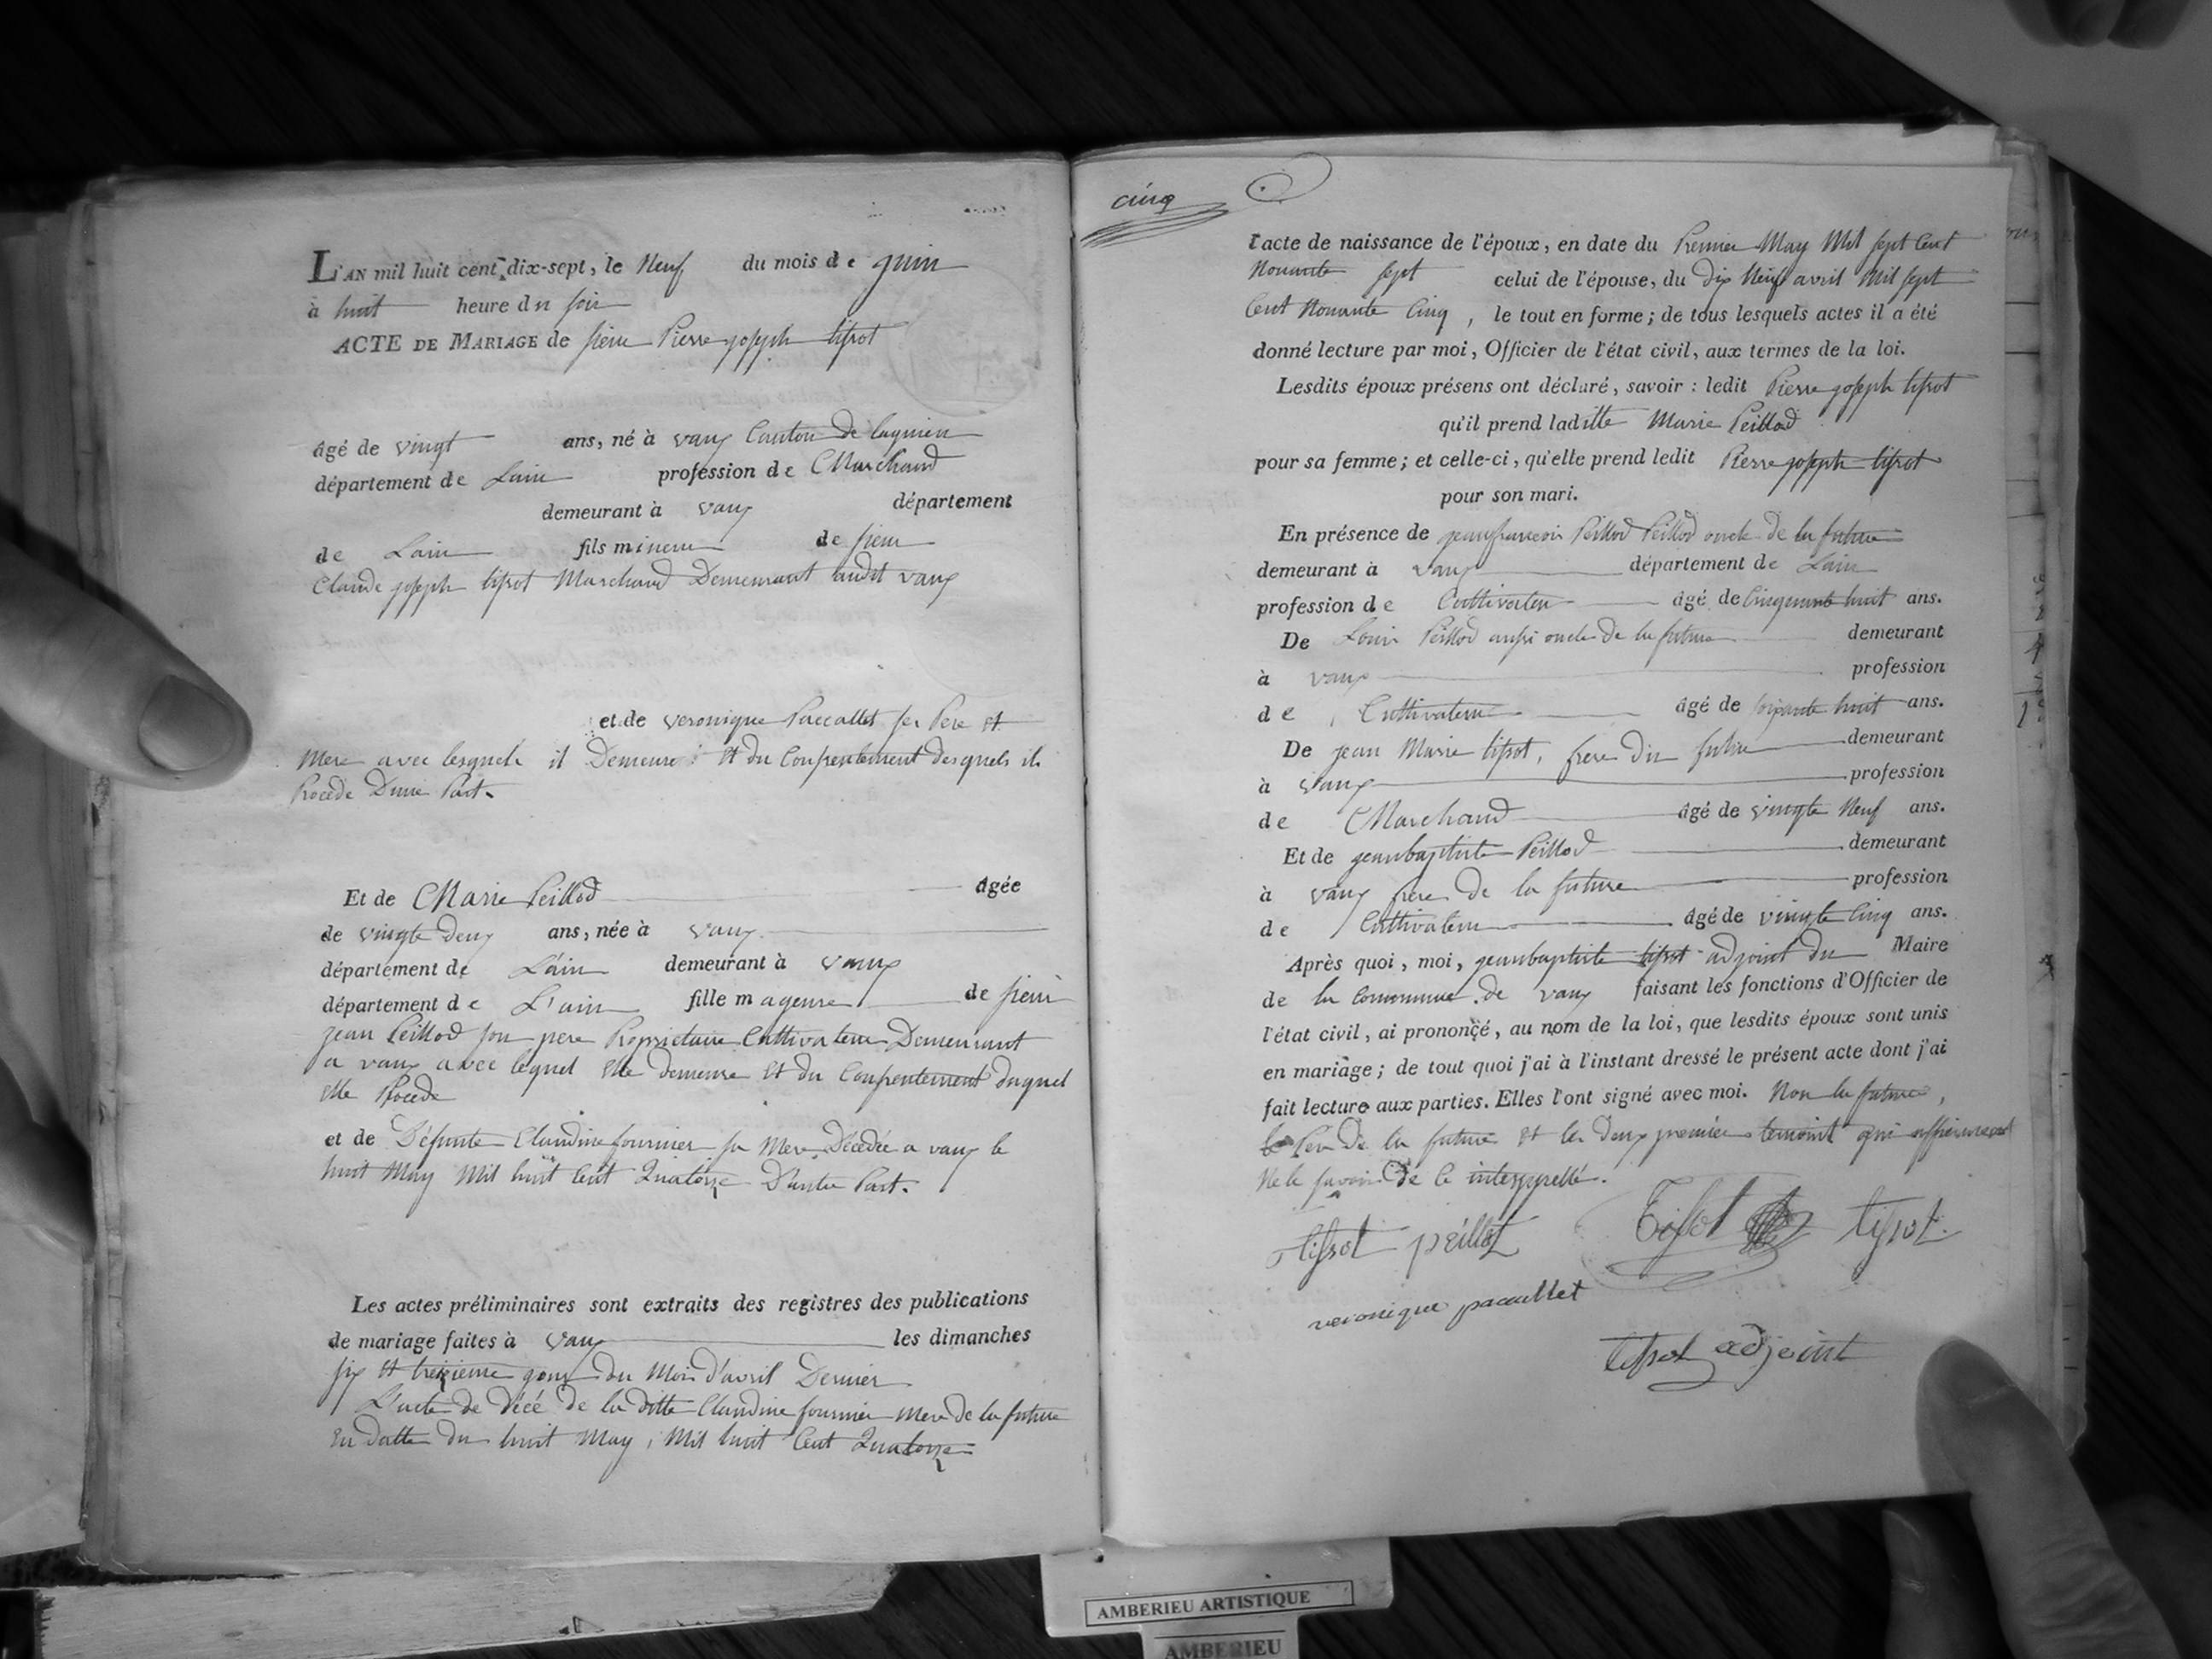 L'AN mil huit cent dix-sept, le Neuf du mois de juin
à huit heure du soir
ACTE DE MARIAGE de sieur Pierre joseph tissot
âgé de vingt ans, né à vaux Canton de lagnieu
département de Lain profession de Marchand
demeurant à vaux département
de Lain fils mineur de sieur
Claude joseph tissot Marchand Demeurant audit vaux
et de veronique Paccallet ses Pere et
Mere avec lesquels il Demeure et du Consentement desquels il
Procede Dune Part.
Et de Marie Peillod âgée
de vingte deux ans, née à vaux
département de L'ain demeurant à vaux
département de L'ain fille mageure de sieur
jean Peillod son pere Propriétaire Cultivateur Demeurant
a vaux avec lequel elle demeure et du Consentement duquel
elle Procede
et de Défunte Claudine fournier sa Mere Décédée a vaux le
huit May Mil huit Cent Quatorze D'autre Part.
Les actes préliminaires sont extraits des registres des publications
de mariage faites à vaux les dimanches
six et treizieme jour du Mois d'avril Dernier
L'acte de décé de la ditte Claudine fournier Mere de la future
En datte du huit May, Mil huit Cent Quatorze
cinq
l'acte de naissance de l'époux, en date du Premier May Mil sept Cent
Nonante sept celui de l'épouse, du dix Neuf avril Mil sept
Cent Nonante Cinq, le tout en forme; de tous lesquels actes il a été
donné lecture par moi, Officier de l'état civil, aux termes de la loi.
Lesdits époux présens ont déclaré, savoir : ledit Pierre joseph tissot
qu'il prend laditte Marie Peillod
pour sa femme; et celle-ci, qu'elle prend ledit Pierre joseph tissot
pour son mari.
En présence de jeanfrancois Peillod Peillod oncle de la future
demeurant à vaux département de Lain
profession de Cultivateur âgé de Cinquante huit ans.
De Louis Peillod aussi oncle de la future demeurant
à vaux profession
de Cultivateur âgé de soixante huit ans.
De jean Marie tissot, frere du futur demeurant
à vaux profession
de Marchand âgé de vingte Neuf ans.
Et de jeanbaptiste Peillod demeurant
à vaux frere de la future profession
de Cultivateur âgé de vingte Cinq ans.
Après quoi, moi, jeanbaptiste tissot adjoint du Maire
de la Commune de vaux faisant les fonctions d'Officier de
l'état civil, ai prononçé, au nom de la loi, que lesdits époux sont unis
en mariage; de tout quoi j'ai à l'instant dressé le présent acte dont j'ai
fait lecture aux parties. Elles l'ont signé avec moi. Non la future,
le Pere de la future et les deux premiers temoins qui
Ne le savoir De ce interppellé.
tissot peillot Tissot tissot
veronique pacaullet
tissot adjoint
AMBERIEU ARTISTIQUE
AMBERIEU